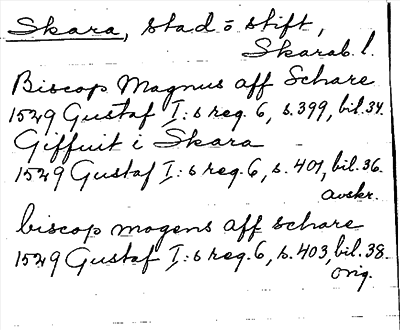 Skara, stad o stift,
Skarab. l.
Biscop Magnus aff Schare
1529 Gustaf I:s reg. 6, s. 399, bil. 34.
Giffuit i Skara
1529 Gustaf I:s reg. 6, s. 401, bil. 36.
avskr.
biscop mogens aff schare
1529 Gustaf I:s reg. 6, s. 403, bil. 38.
orig.